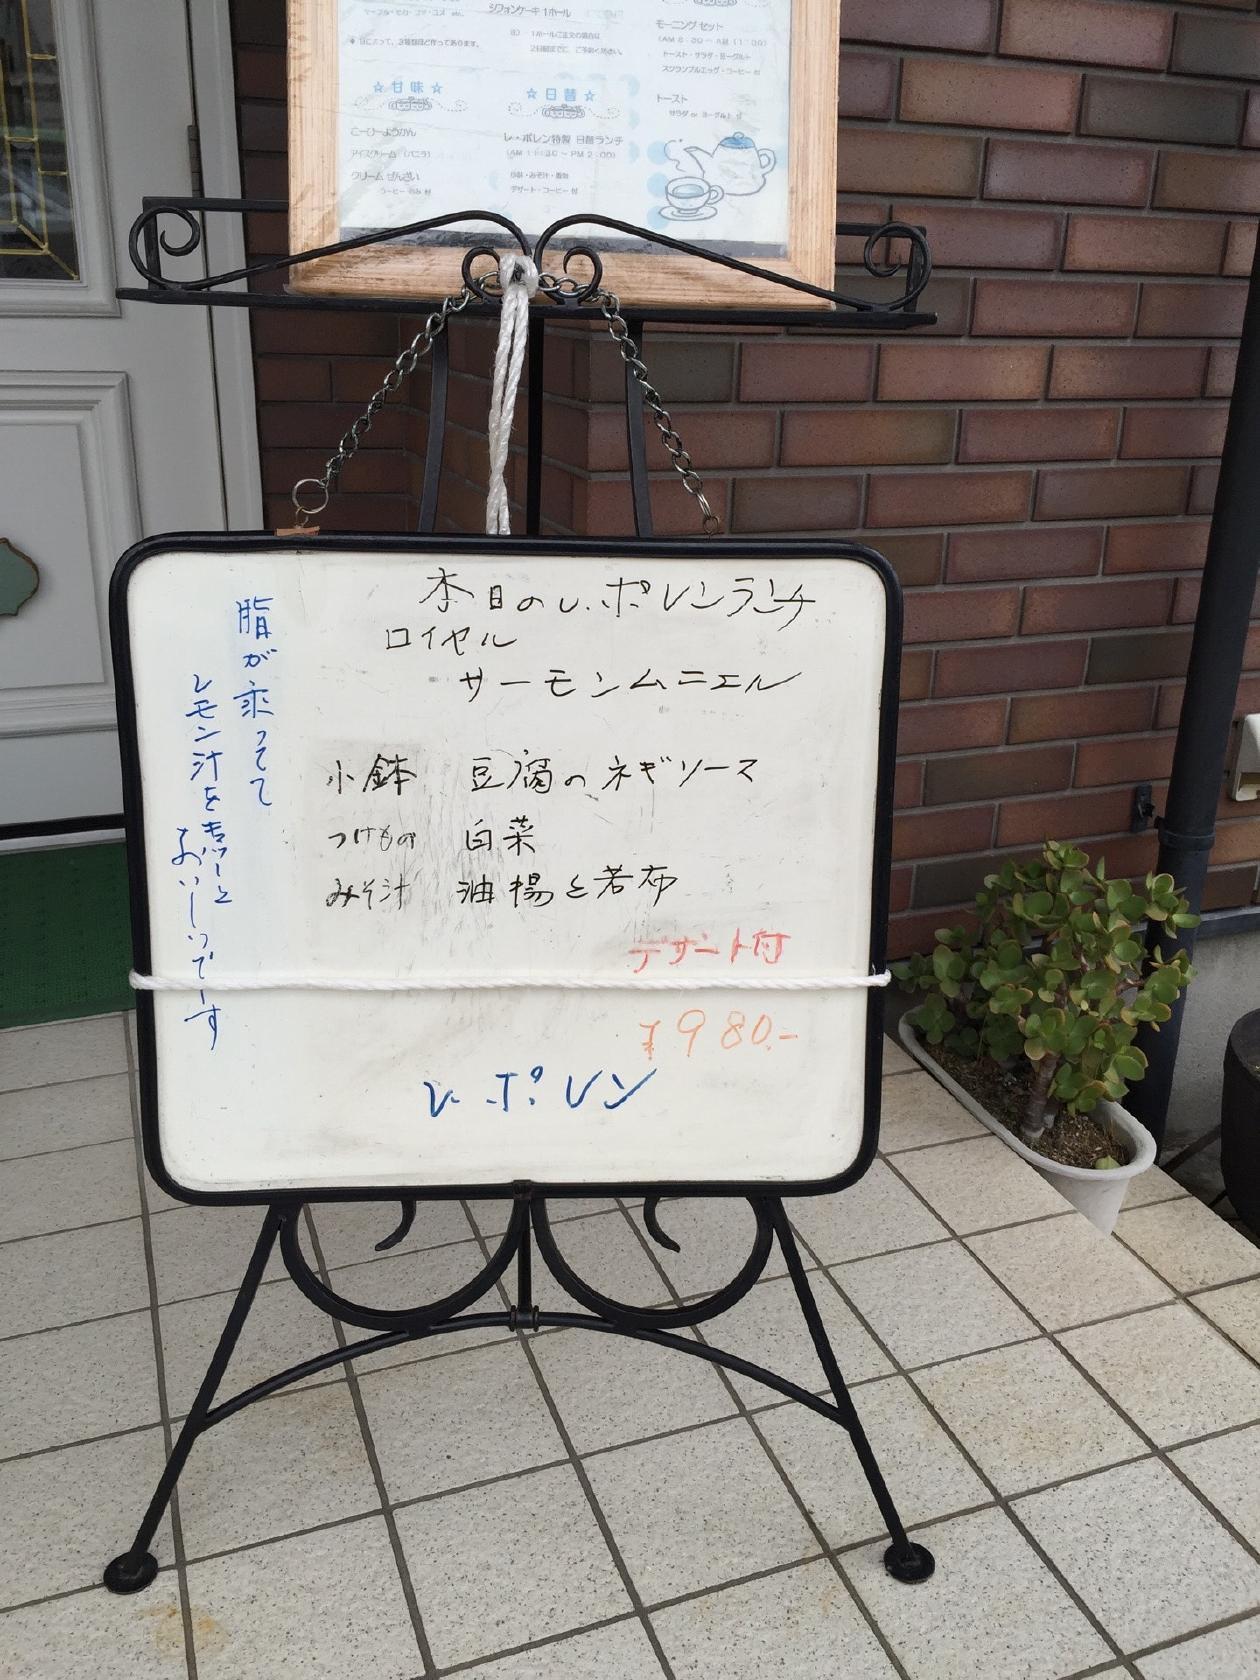 ケーブル・ピロ・ゴマ・ユメ etc.
シフォンケーキ 1ホール
1ホールご注文の場合は
2日前までに、ご予約ください。
モーニングセット
(AM 8:30〜AM 11:30)
トースト・サラダ・ヨーグルト
スクランブルエッグ・コーヒー 付
トースト
サラダ or ヨーグルト 付
☆ 甘味 ☆
こーひーようかん
アイスクリーム (バニラ)
クリーム ぜんざい
コーヒー のみ 付
☆ 日替 ☆
レ・ポレン特製 日替ランチ
(AM 11:30 〜 PM 2:00)
小鉢・みそ汁・香物
デザート・コーヒー 付
本日のレ・ポレンランチ
ロイヤル
サーモンムニエル
小鉢 豆腐のネギソース
つけもの 白菜
みそ汁 油揚と若布
デザート付
¥980.-
レ・ポレン
脂が乗ってて
レモン汁をキューッと
おいしいでーす